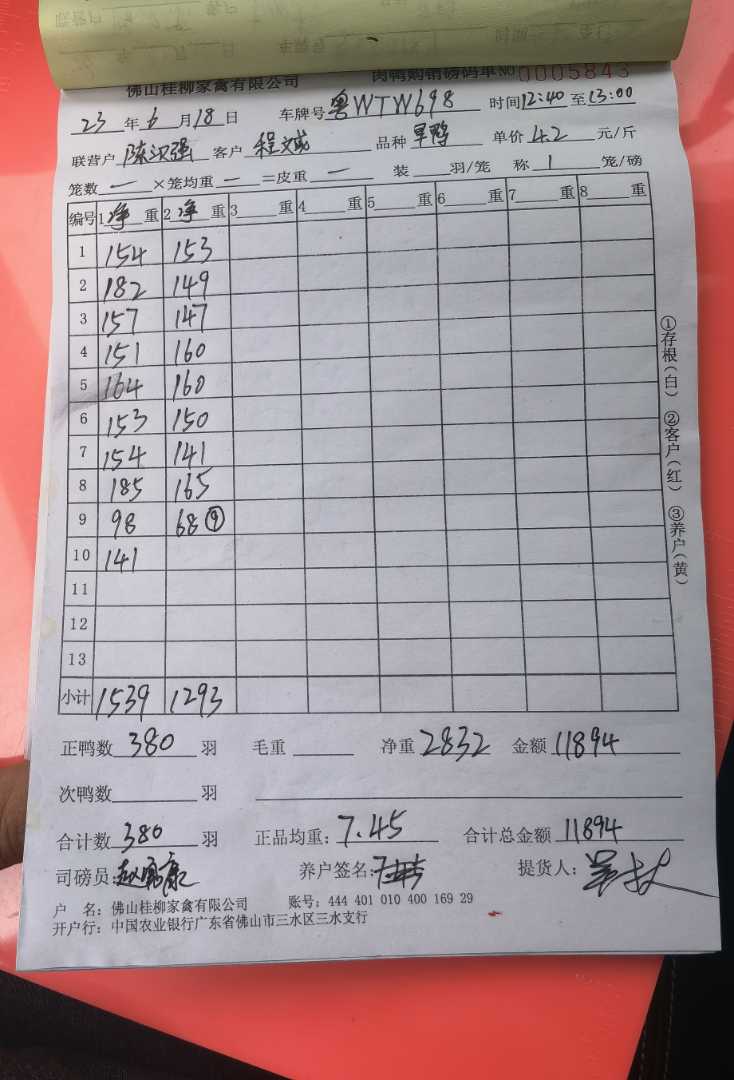 佛山桂柳家禽有限公司 肉鸭购销磅码单NO 0005843
23 年 6 月 18 日 车牌号 粤WTW698 时间 12:40 至 13:00
联营户 陈汉强 客户 程文威 品种 旱鸭 单价 4.2 元/斤
笼数 一 ×笼均重 一 =皮重 一 装 羽/笼 称 1 笼/磅
编号 1 净 重 2 净 重 3 重 4 重 5 重 6 重 7 重 8 重
1 154 153
2 182 149
3 157 147
4 151 160
5 164 160
6 153 150
7 154 141
8 185 165
9 98 68 ⑨
10 141
11
12
13
小计 1539 1293
正鸭数 380 羽 毛重 净重 2832 金额 11894
次鸭数 羽
合计数 380 羽 正品均重: 7.45 合计总金额 11894
司磅员: 养户签名: 提货人:
户 名: 佛山桂柳家禽有限公司 账号: 444 401 010 400 169 29
开户行: 中国农业银行广东省佛山市三水区三水支行
①存根(白) ②客户(红) ③养户(黄)